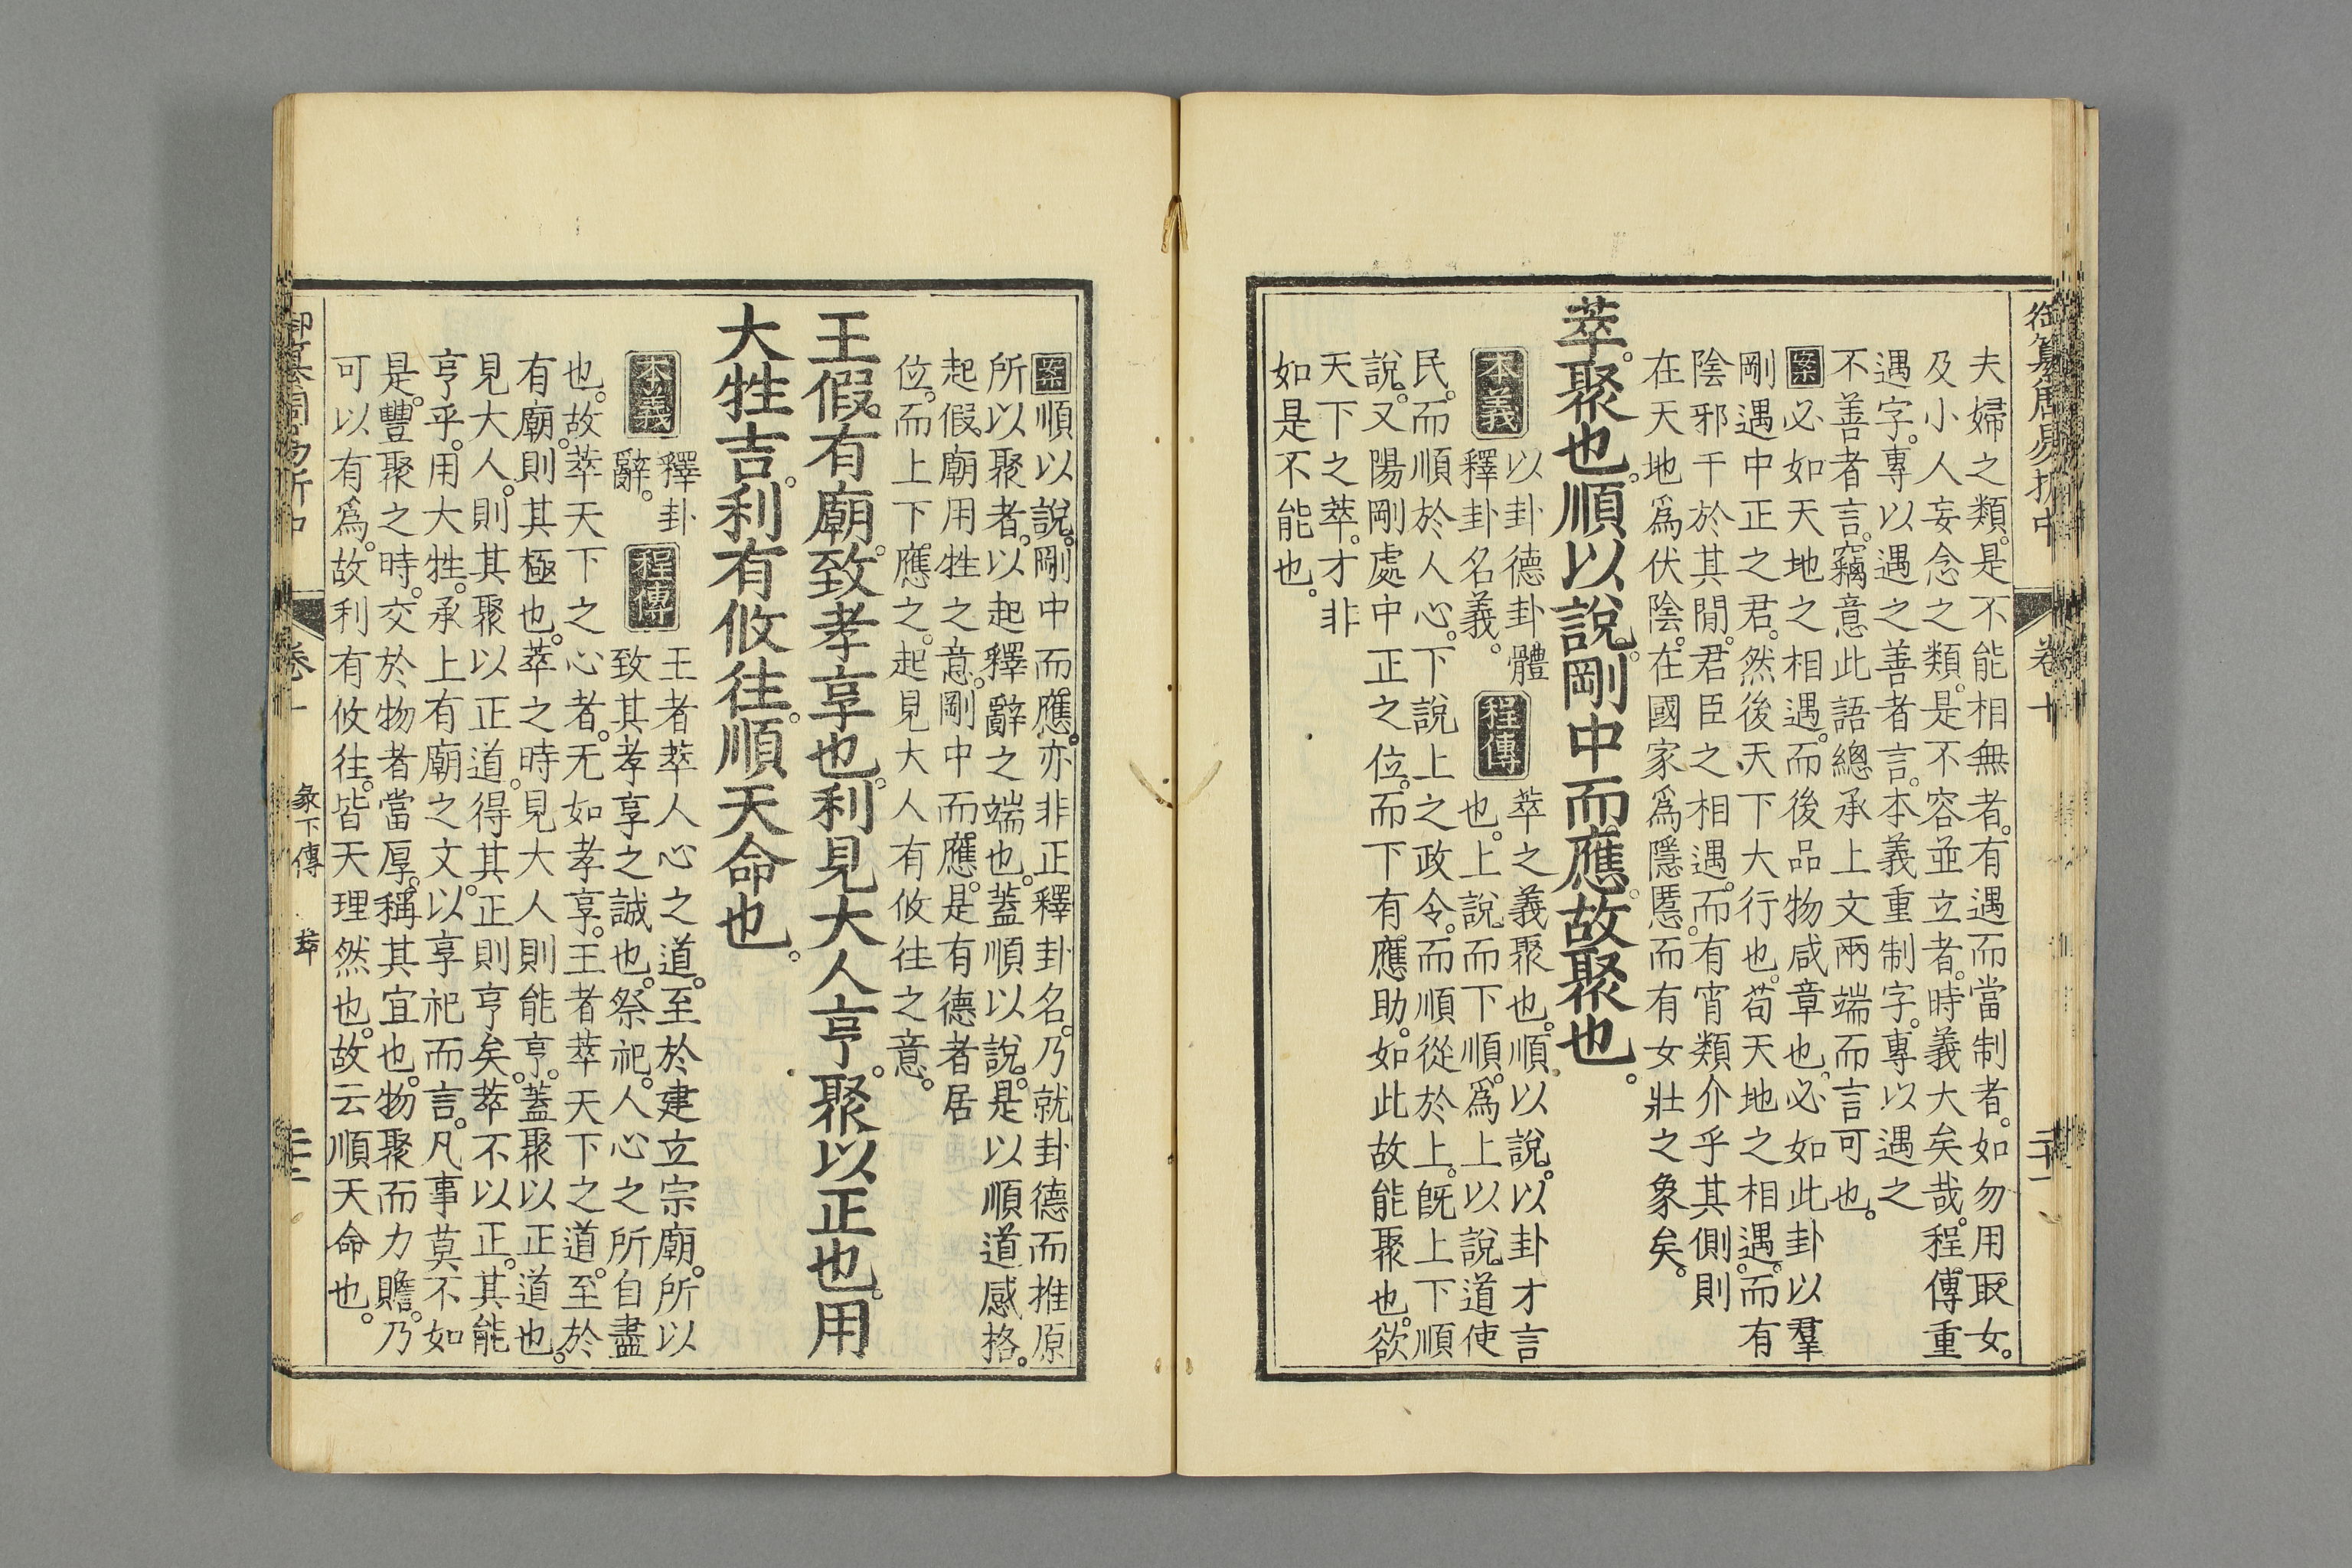 御纂周易折中 卷十 二十一
夫婦之類。是不能相無者。有遇而當制者。如勿用取女。
及小人妄念之類。是不容並立者。時義大矣哉。程傳重
遇字。專以遇之善者言。本義重制字。專以遇之
不善者言。竊意此語總承上文兩端而言可也。
案必如天地之相遇。而後品物咸章也。必如此卦以羣
剛遇中正之君。然後天下大行也。苟天地之相遇。而有
陰邪干於其閒。君臣之相遇。而有宵類介乎其側。則
在天地爲伏陰。在國家爲隱慝。而有女壯之象矣。
萃。聚也。順以說。剛中而應。故聚也。
本義 以卦德卦體
釋卦名義。
程傳 萃之義聚也。順以說。以卦才言
也。上說而下順。爲上以說道使
民。而順於人心。下說上之政令。而順從於上。既上下順
說。又陽剛處中正之位。而下有應助。如此故能聚也。欲
天下之萃。才非
如是不能也。
案順以說。剛中而應。亦非正釋卦名。乃就卦德而推原
所以聚者。以起釋辭之端也。蓋順以說。是以順道感格。
起假廟用牲之意。剛中而應。是有德者居
位。而上下應之。起見大人。有攸往之意。
王假有廟。致孝享也。利見大人亨。聚以正也。用
大牲吉。利有攸往。順天命也。
本義 釋卦
辭。
程傳 王者萃人心之道。至於建立宗廟。所以
致其孝享之誠也。祭祀。人心之所自盡
也。故萃天下之心者。无如孝享。王者萃天下之道。至於
有廟。則其極也。萃之時。見大人則能亨。蓋聚以正道也。
見大人。則其聚以正道。得其正則亨矣。萃不以正。其能
亨乎。用大牲。承上有廟之文。以享祀而言。凡事莫不如
是。豐聚之時。交於物者當厚。稱其宜也。物聚而力贍。乃
可以有爲。故利有攸往。皆天理然也。故云順天命也。
御纂周易折中 卷十 彖下傳 萃